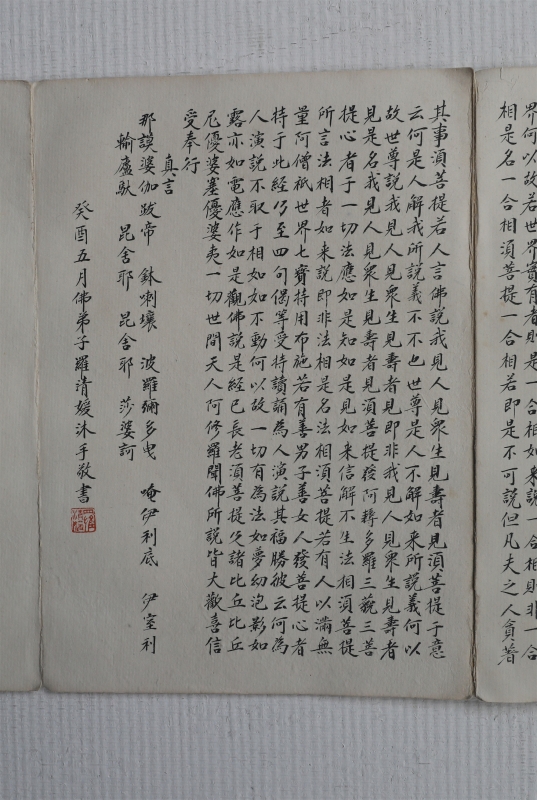 界何以故若世界實有者則是一合相如来說一合相則非一合
相是名一合相須菩提一合相若即是不可說但凡夫之人貪著
其事須菩提若人言佛說我見人見衆生見壽者見須菩提于意
云何是人解我所說義不不也世尊是人不解如来所說義何以
故世尊說我見人見衆生見壽者見即非我見人見衆生見壽者
見是名我見人見衆生見壽者見須菩提發阿耨多羅三藐三菩
提心者于一切法應如是知如是見如来信解不生法相須菩提
所言法相者如来說即非法相是名法相須菩提若有人以滿無
量阿僧祇世界七寶持用布施若有善男子善女人發菩提心者
持于此經乃至四句偈等受持讀誦為人演說其福勝彼云何為
人演說不取于相如如不動何以故一切有為法如夢幻泡影如
露亦如電應作如是觀佛說是經已長老須菩提及諸比丘比丘
尼優婆塞優婆夷一切世間天人阿修羅聞佛所說皆大歡喜信
受奉行
真言
那謨婆伽跋帝 鉢喇壤 波羅彌多曳 唵伊利底 伊室利
輸盧馱 毘舍耶 毘舍耶 莎婆訶
癸酉五月佛弟子羅清媛沐手敬書